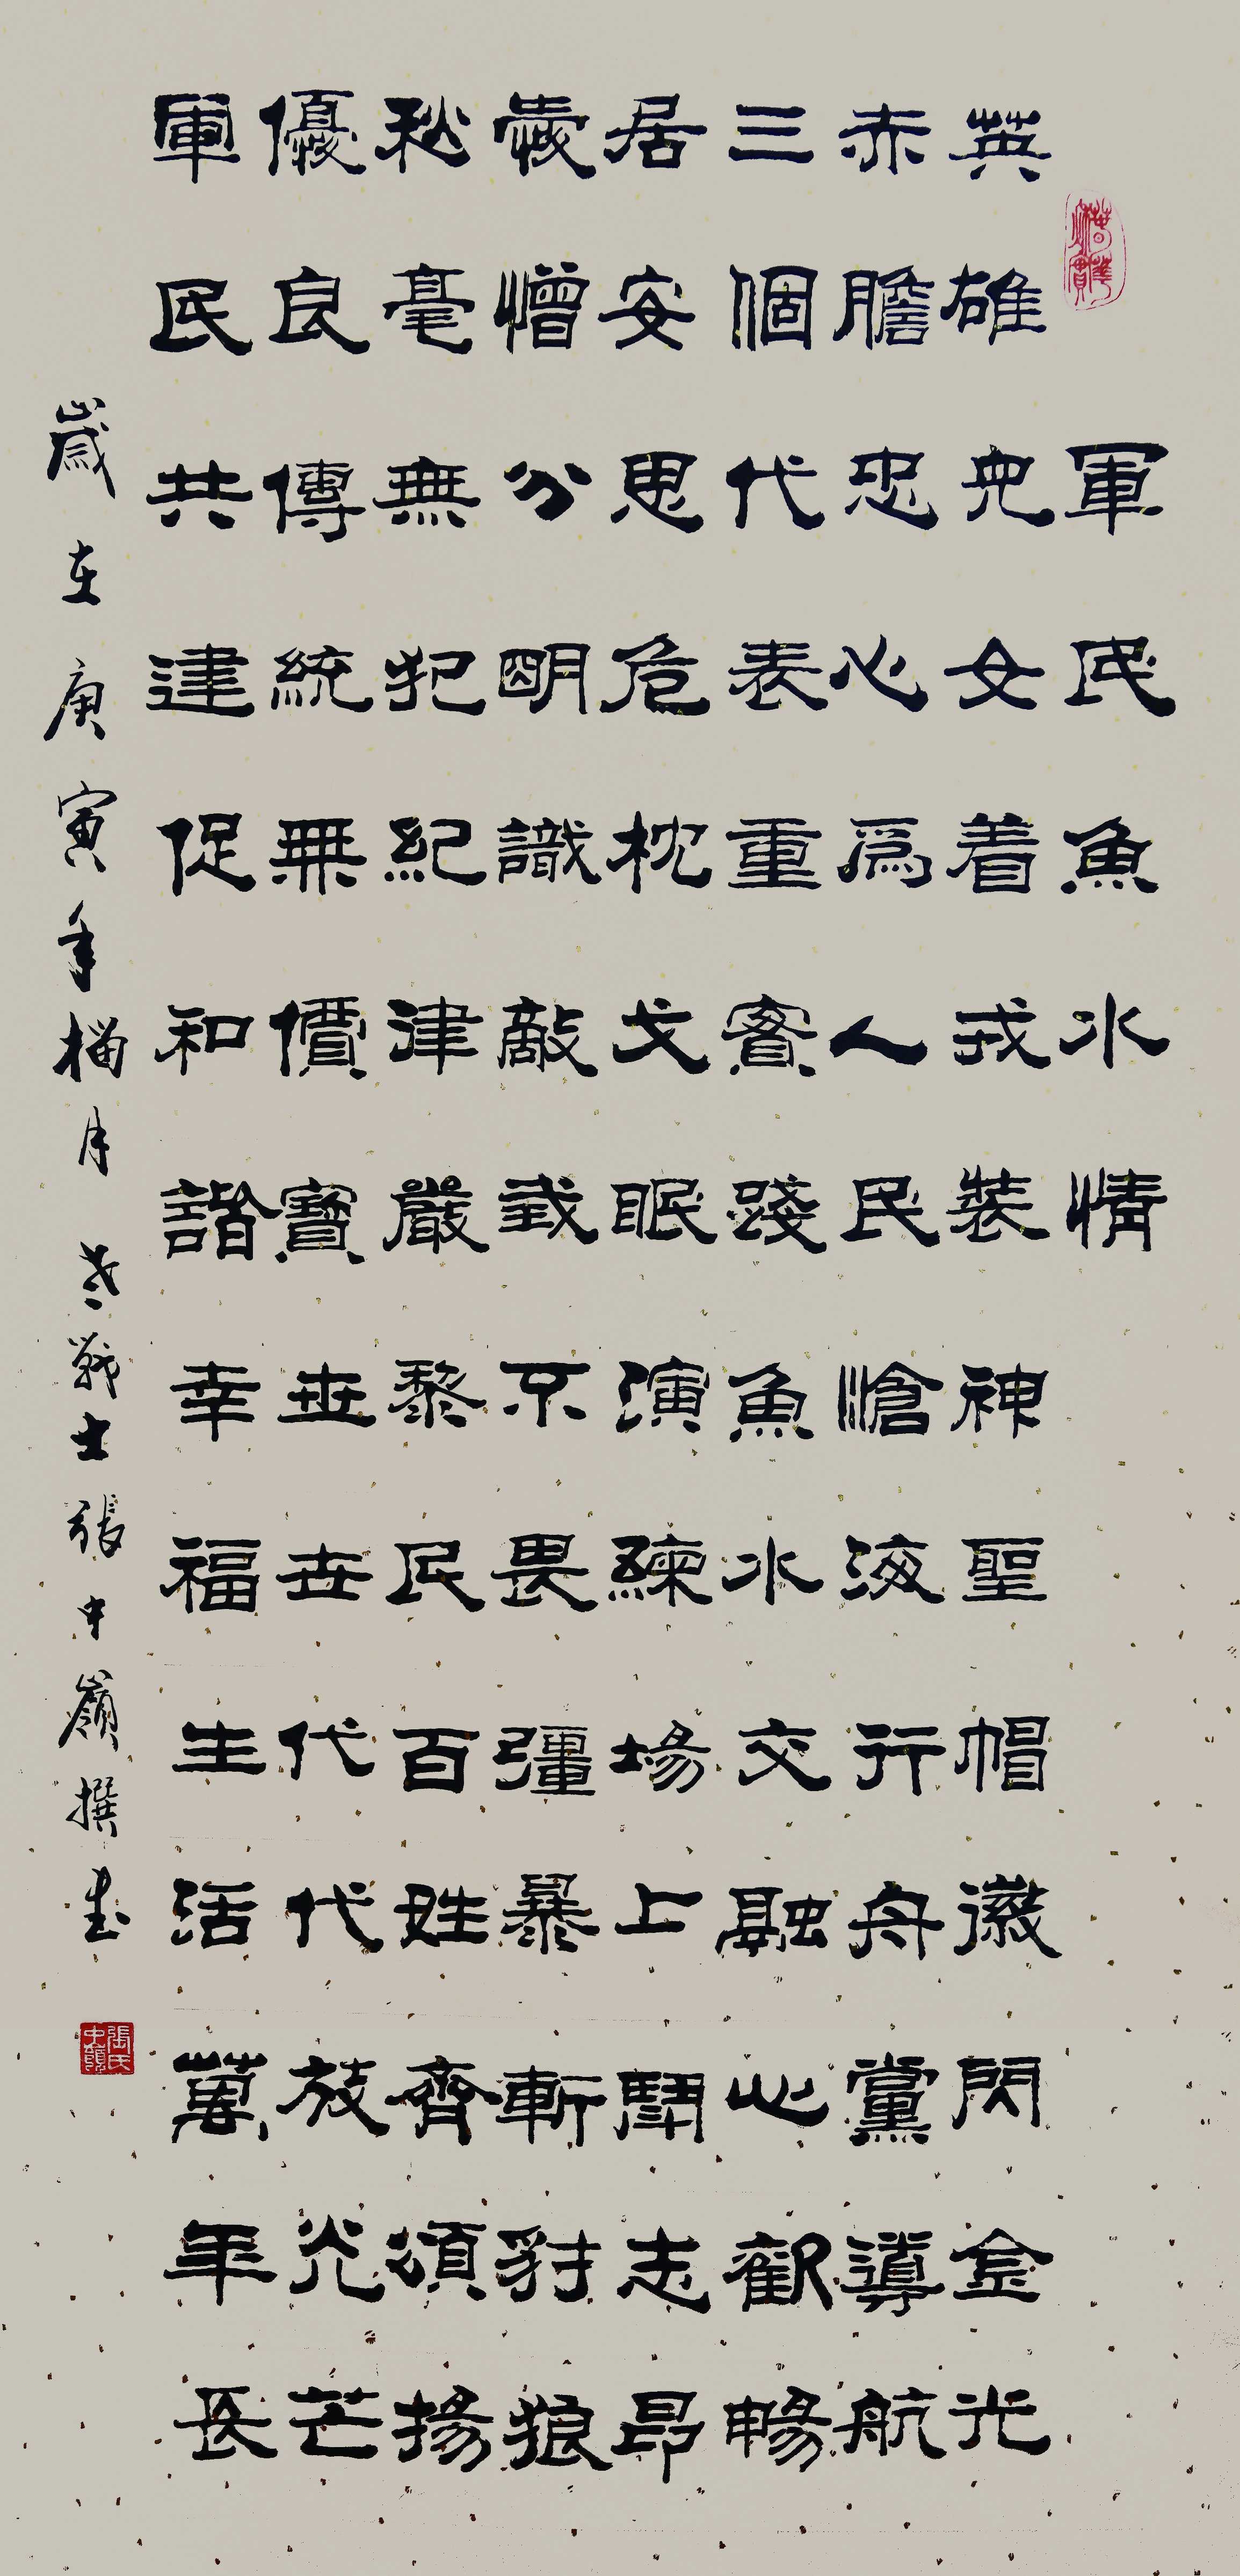 軍民魚水情
英雄兒女着戎裝神聖帽徽閃金光
赤膽忠心爲人民滄海行舟黨導航
三個代表重實踐魚水交融心歡暢
居安思危枕戈眠演練場上鬥志昂
愛憎分明識敵我不畏彊暴斬豺狼
秋毫無犯紀律嚴黎民百姓齊頌揚
優良傳統無價寶世世代代放光芒
軍民共建促和諧幸福生活萬年長
歲在庚寅年榴月 老戰士張中嶺撰書
張氏中嶺